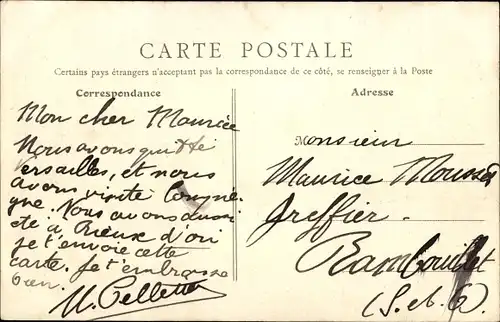 CARTE POSTALE
Certains pays étrangers n'acceptant pas la correspondance de ce côté, se renseigner à la Poste
Correspondance
Mon cher Maurice
Nous avons quitté
Versailles, et nous
avons visité Compiè-
gne. Nous avons aussi
été à Rieux d'où
je t'envoie cette
carte. Je t'embrasse
bien.
M. Pelletier
Adresse
Monsieur
Maurice
Greffier
Rambouillet
(S. et O.)